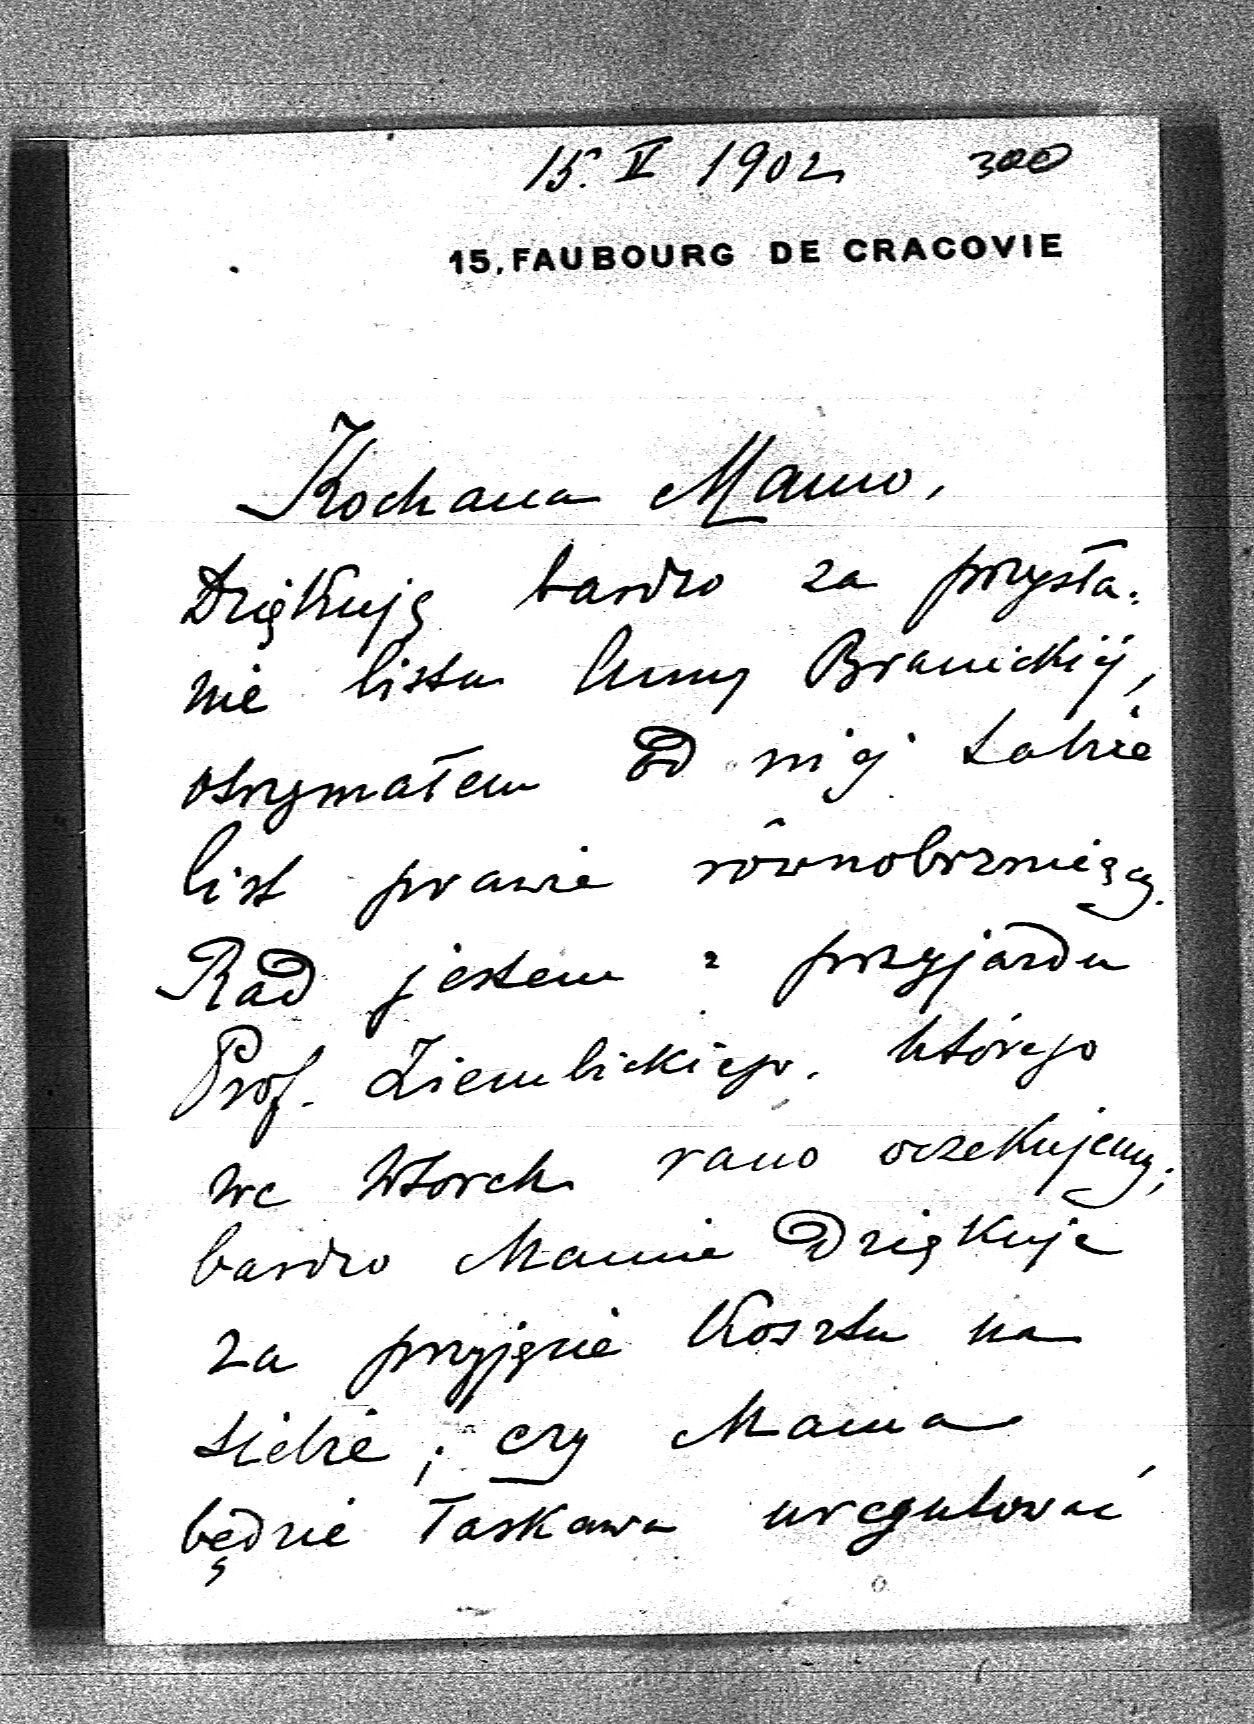 15. V 1902 300
15, FAUBOURG DE CRACOVIE
Kochana Mamo,
Dziękuję bardzo za przysła-
nie listu Anny Branickiej,
otrzymałem od niej także
list prawie równobrzmiący.
Rad jestem z przyjazdu
Prof. Ziembickiego, którego
we Wtorek rano oczekujemy;
bardzo Mamie dziękuje
za przyjęcie kosztu na
siebie; czy Mama
będzie łaskawa uregulować